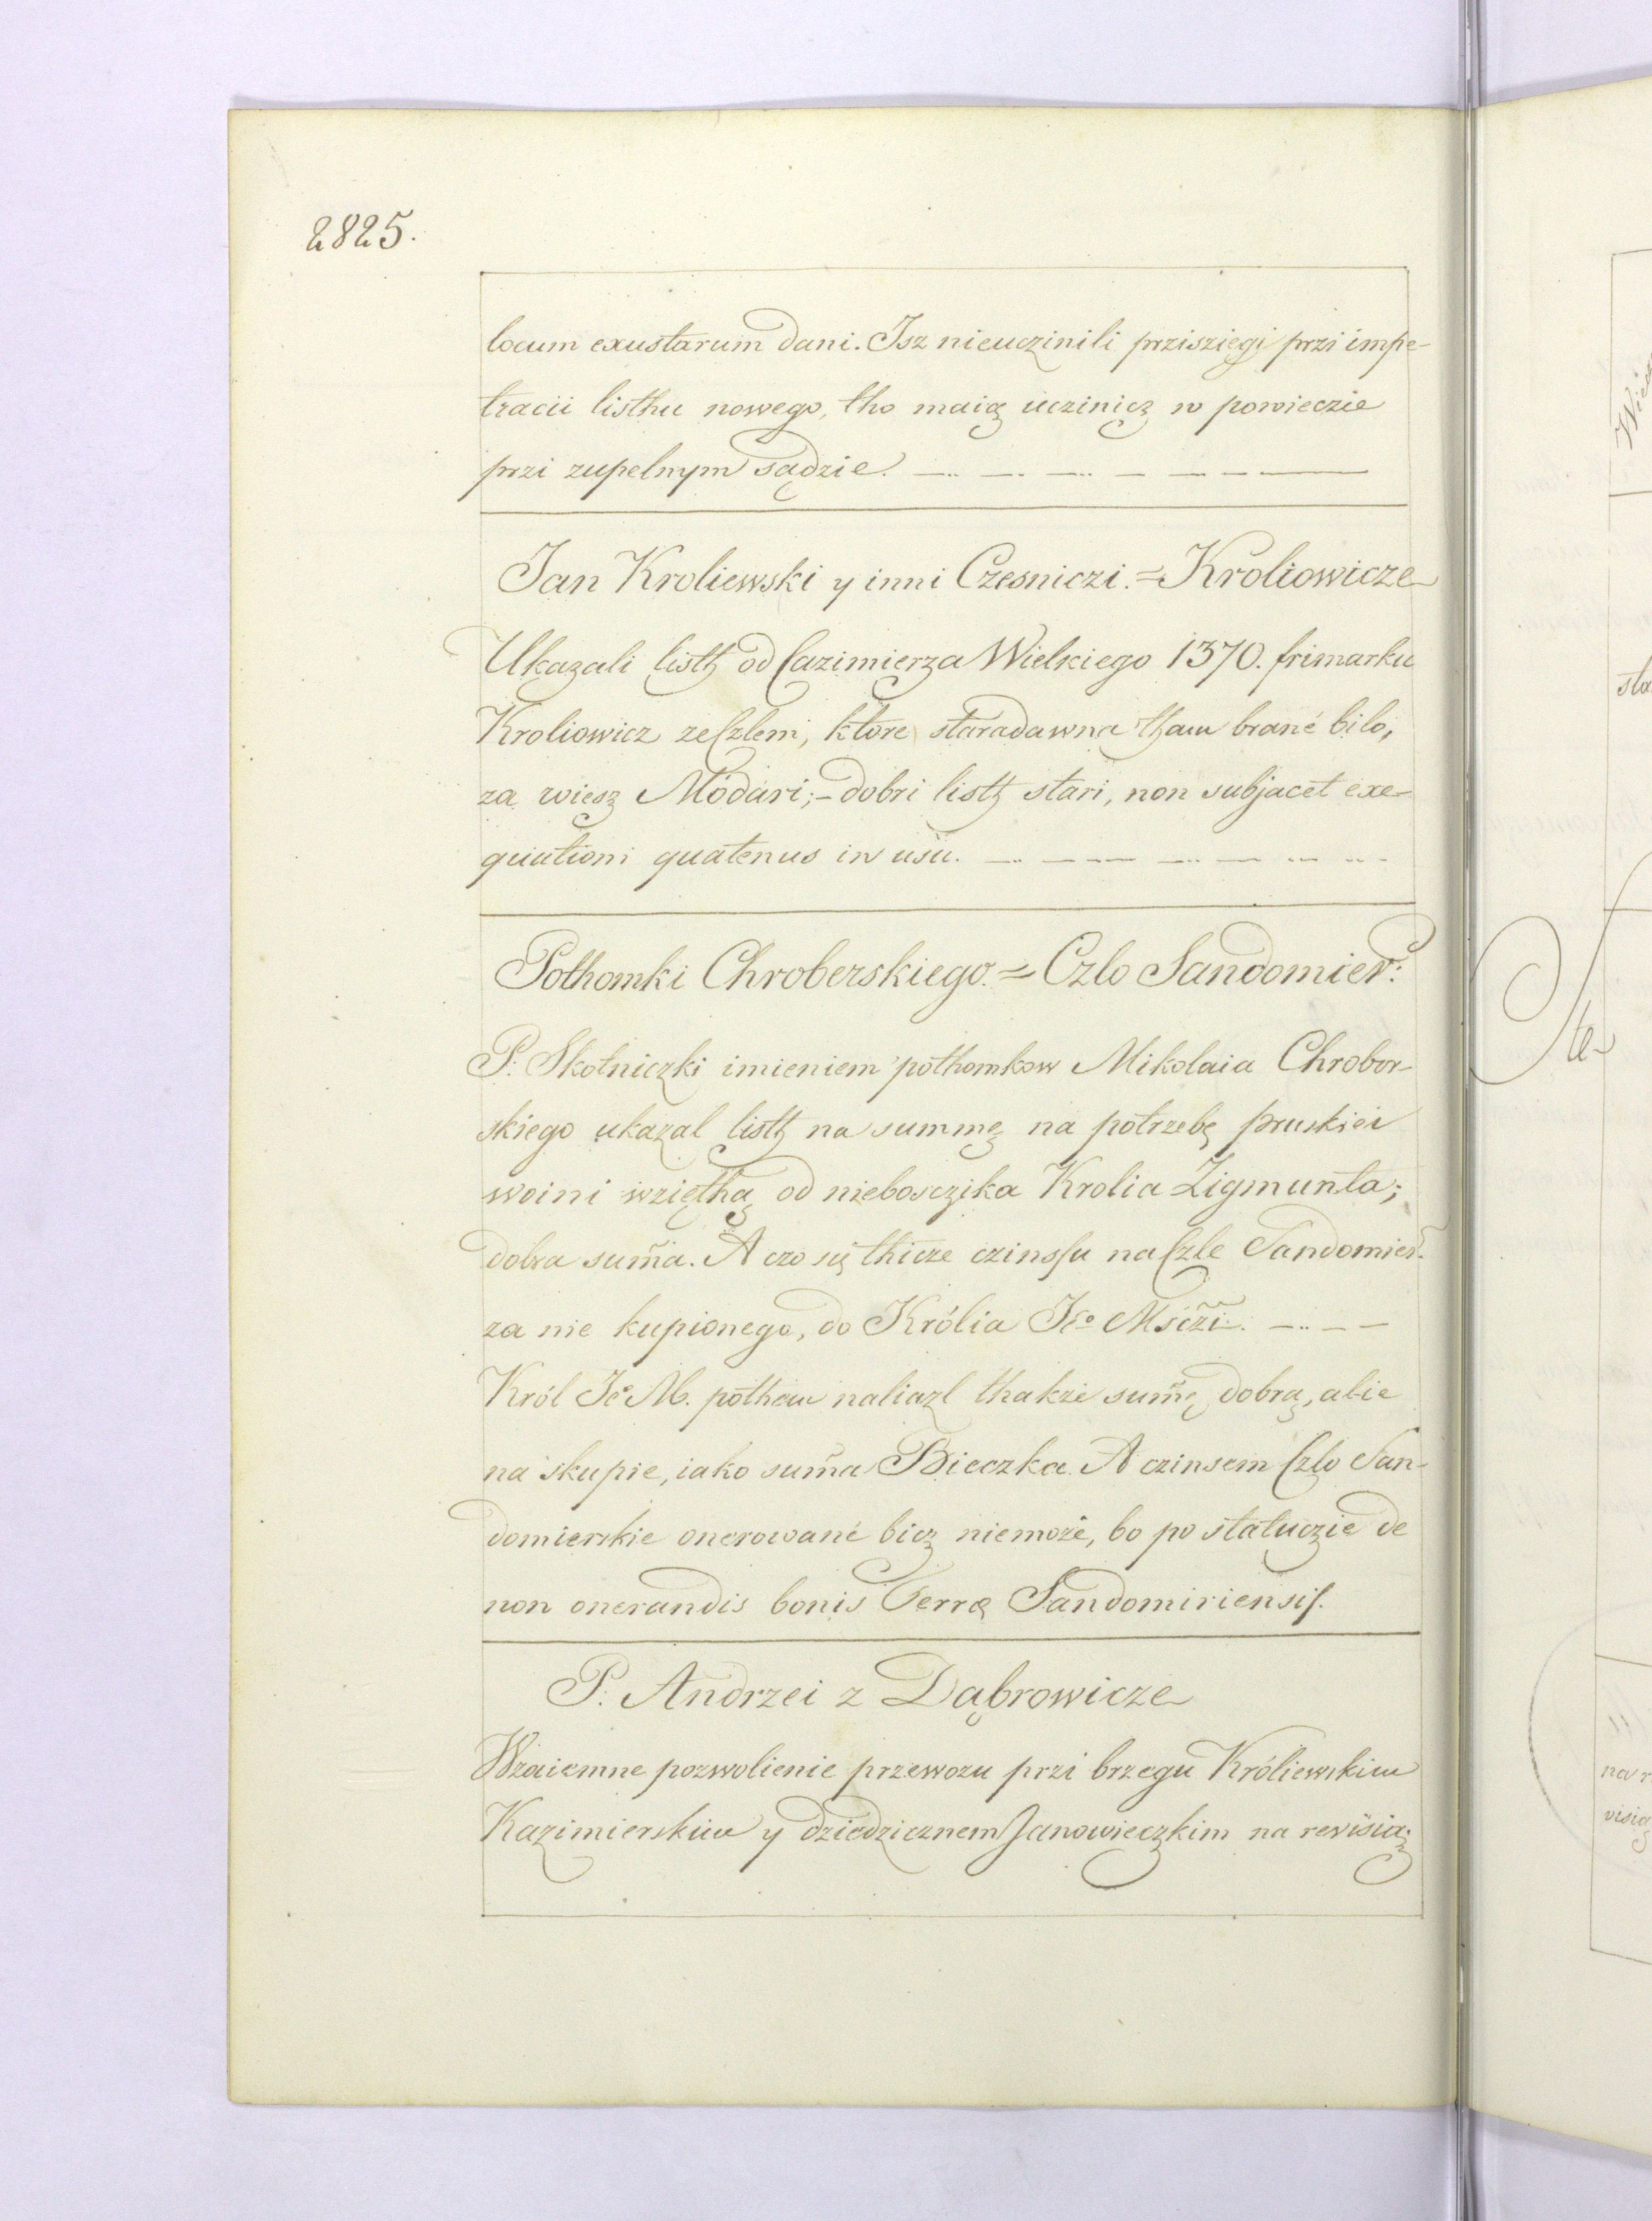 2825.
locum exustarum dani. Isz nieuczinili prziszięgi przi impe-
tracii listhu nowego, tho maią uczinicz w powieczie
przi zupelnym sądzie.
Jan Kroliewski y inni Czesniczi. = Kroliowicze
Ukazali listh od Cazimierza Wielkiego 1370. frimarku
Kroliowicz ze Czlem, ktore staradawna tham brané bilo,
za wiesz Modari; - dobri listh stari, non subjacet exe-
quutioni quatenus in usu.
Pothomki Chroberskiego. = Czlo Sandomier:
P. Skotniczki imieniem pothomkow Mikolaia Chrobor-
skiego ukazal listh na summę na potrzebę pruskiei
woini wziętha od niebosczika Krolia Zigmunta;
dobra sum̃a. A czo się thicze czinssu na Czle Sandomier-
za nie kupionego, do Królia Jeo Msczi.
Król Je M. pothem naliazl thakże sum̃ę dobrą, alie
na skupie, iako sum̃a Bieczka. A czinsem Czlo San-
domierskie onerowané bicz niemoże, bo po statuczie de
non onerandis bonis Terrę Sandomiriensis.
P. Andrzei z Dąbrowicze
Wzaiemne pozwolienie przewozu przi brzegu Króliewskim
Kazimierskim y dziedzicznem Janowieczkim na revisią.